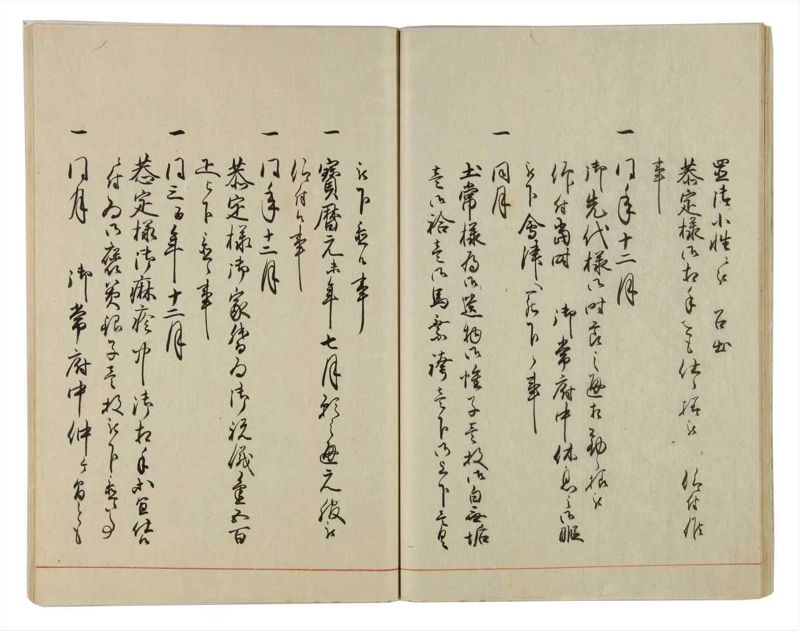 恭定様御相手をも仕候様被 仰付候
事
一 同年十二月
御先代様御時節之通相勤候様被
仰付当時 御常府中休息之御暇
被下会津へ罷下候事
一 同月
土常様為御遺物御帷子壱枚御白無垢
壱御袷壱御馬乗袴壱下御上下壱具
被下置候事
一 寶暦元未年七月願之通元服被
仰付候事
一 同年十二月
恭定様御家督為御祝儀金五百
疋被下置候事
一 同三酉年十二月
恭定様御麻疹中御相手 仕候
付為御褒美銀子壱枚被下置候事
一 同月 御常府中仲ヶ間とも